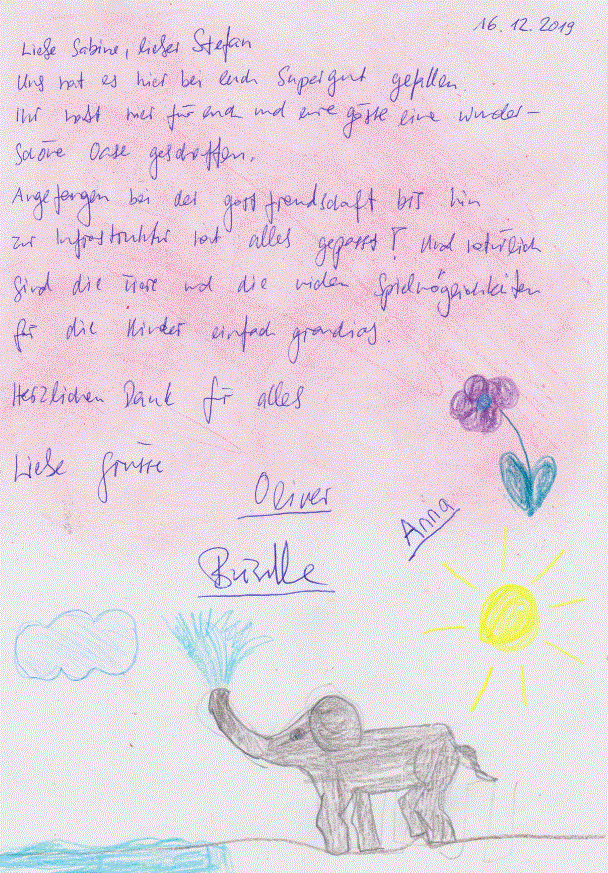 16.12.2019
Liebe Sabine, lieber Stefan
Uns hat es hier bei euch Supergut gefallen.
Ihr habt hier für euch und eure gäste eine wunder-
schöne Oase geschaffen.
Angefangen bei der gastfreundschaft bis hin
zur Infrastruktur hat alles gepasst! Und natürlich
sind die Tiere und die vielen Spielmöglichkeiten
für die Kinder einfach grandios.
Herzlichen Dank für alles
Liebe Grüsse
Oliver
Anna